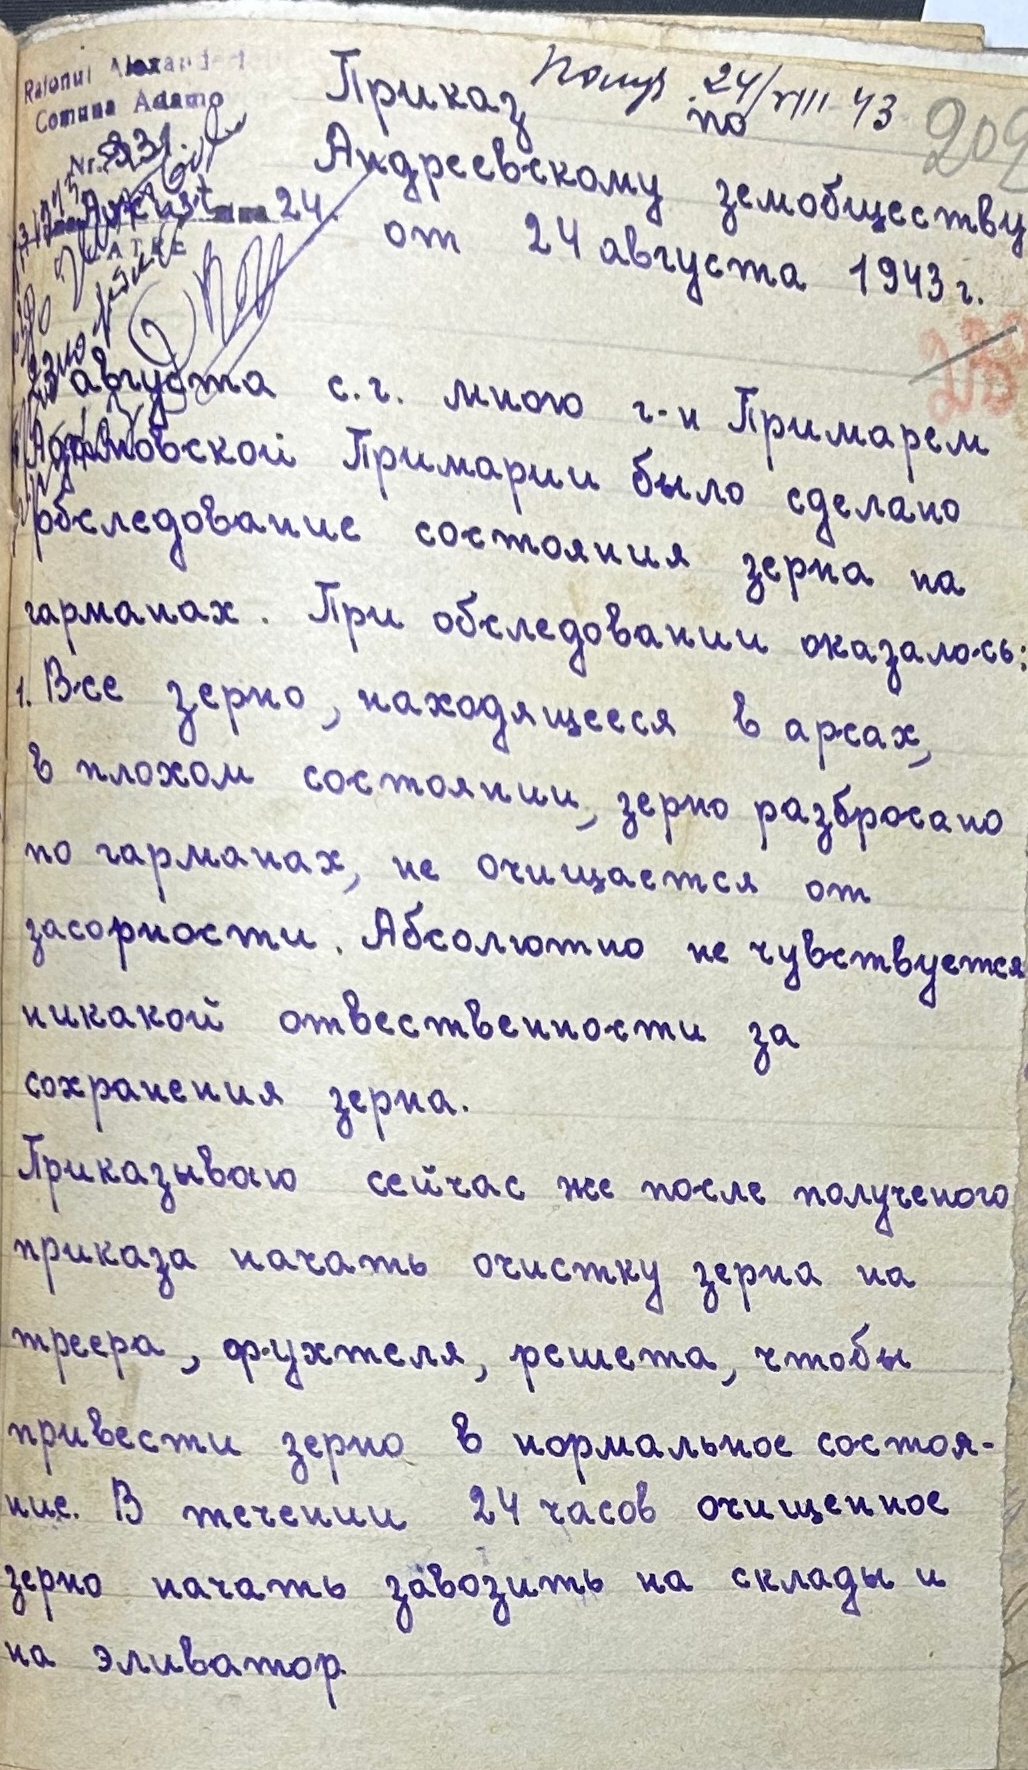 Raionul Alexanderf
Comuna Adamo
Приказ
24/VIII 43
по
209
Nr. 931
Андреевскому земобществу
August 24.
от 24 августа 1943 г.
23 августа с.г. мною г-н Примарем
Адамовской Примарии было сделано
обследование состояния зерна на
гарманах. При обследовании оказалось:
1. Все зерно, находящееся в арсах,
в плохом состоянии, зерно разбросано
по гарманах, не очищается от
засорности. Абсолютно не чувствуется
никакой отвественности за
сохранения зерна.
Приказываю сейчас же после полученого
приказа начать очистку зерна на
треера, фухтеля, решета, чтобы
привести зерно в нормальное состоя-
ние. В течении 24 часов очищенное
зерно начать завозить на склады и
на эливатор.